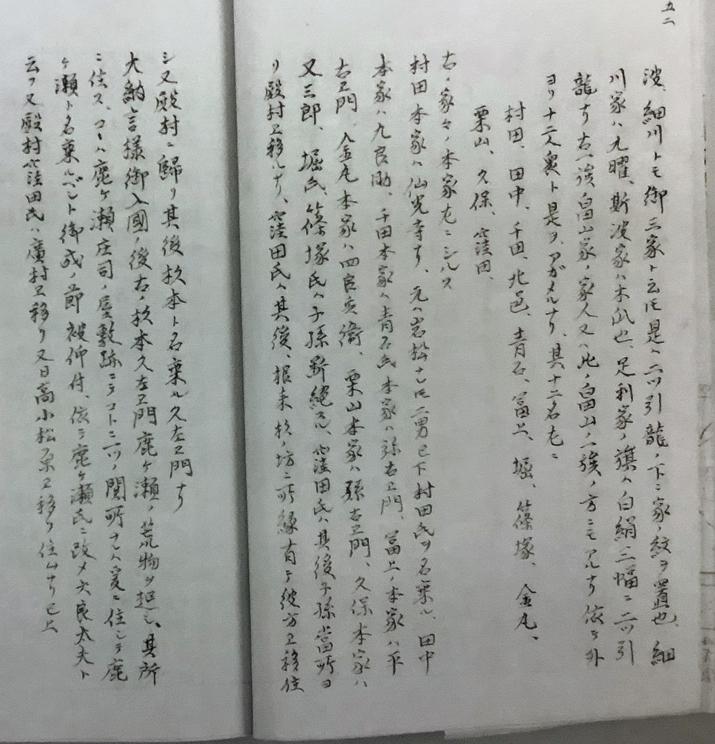 五二
波、細川トモ御三家ト云モ是ハ二ツ引龍ノ下ニ家ノ紋ヲ置也、細
川家ハ九曜、斯波家ハ木瓜也、足利家ノ旗ハ白絹三幅ニ二ツ引
龍ナリ右一族ノ畠山家ノ家人又ハ此ノ畠山ノ一族ノ方ニモアルナリ依テ外
ヨリ十二人衆ト是ヲアガメルナリ、其十二名左ニ
村田、田中、千田、北邑、青石、冨上、堀、篠塚、金丸、
栗山、久保、窪田、
右ノ家々ノ本家左ニシルス
村田本家ハ仙光寺ナリ、元ハ岩松ナル氏二男已下村田氏ヲ名乗ル、田中
本家ハ九良助、千田本家ハ青石氏本家ハ弥右ヱ門、冨上ノ本家ハ平
右ヱ門、金丸本家ハ四良兵衛、栗山本家ハ孫右ヱ門、久保本家ハ
又三郎、堀氏、篠塚氏ハ子孫断絶ス、窪田氏ハ其後子孫當所ヨ
リ殿村ヱ移ルナリ、窪田氏ハ其後、根来杉ノ坊ニ所縁有テ彼方ヱ移住
シ又殿村ニ歸リ其後杉本ト名乗ル久左ヱ門ナリ
大納言様御入國ノ後右ノ杉本久左ヱ門鹿ケ瀬ノ荒物ヲ起シ、其所
ニ住ス、コハ鹿ケ瀬庄司ノ屋敷跡ニテコトニツノ関所ナレハ爰ニ住シテ鹿
ケ瀬ト名乗ルベシト御成ノ節被仰付、依テ鹿ケ瀬氏ニ改メ六良太夫ト
云フ又殿村窪田氏ハ廣村ヱ移リ又日高小松原ヱ移リ住ムナリ已上